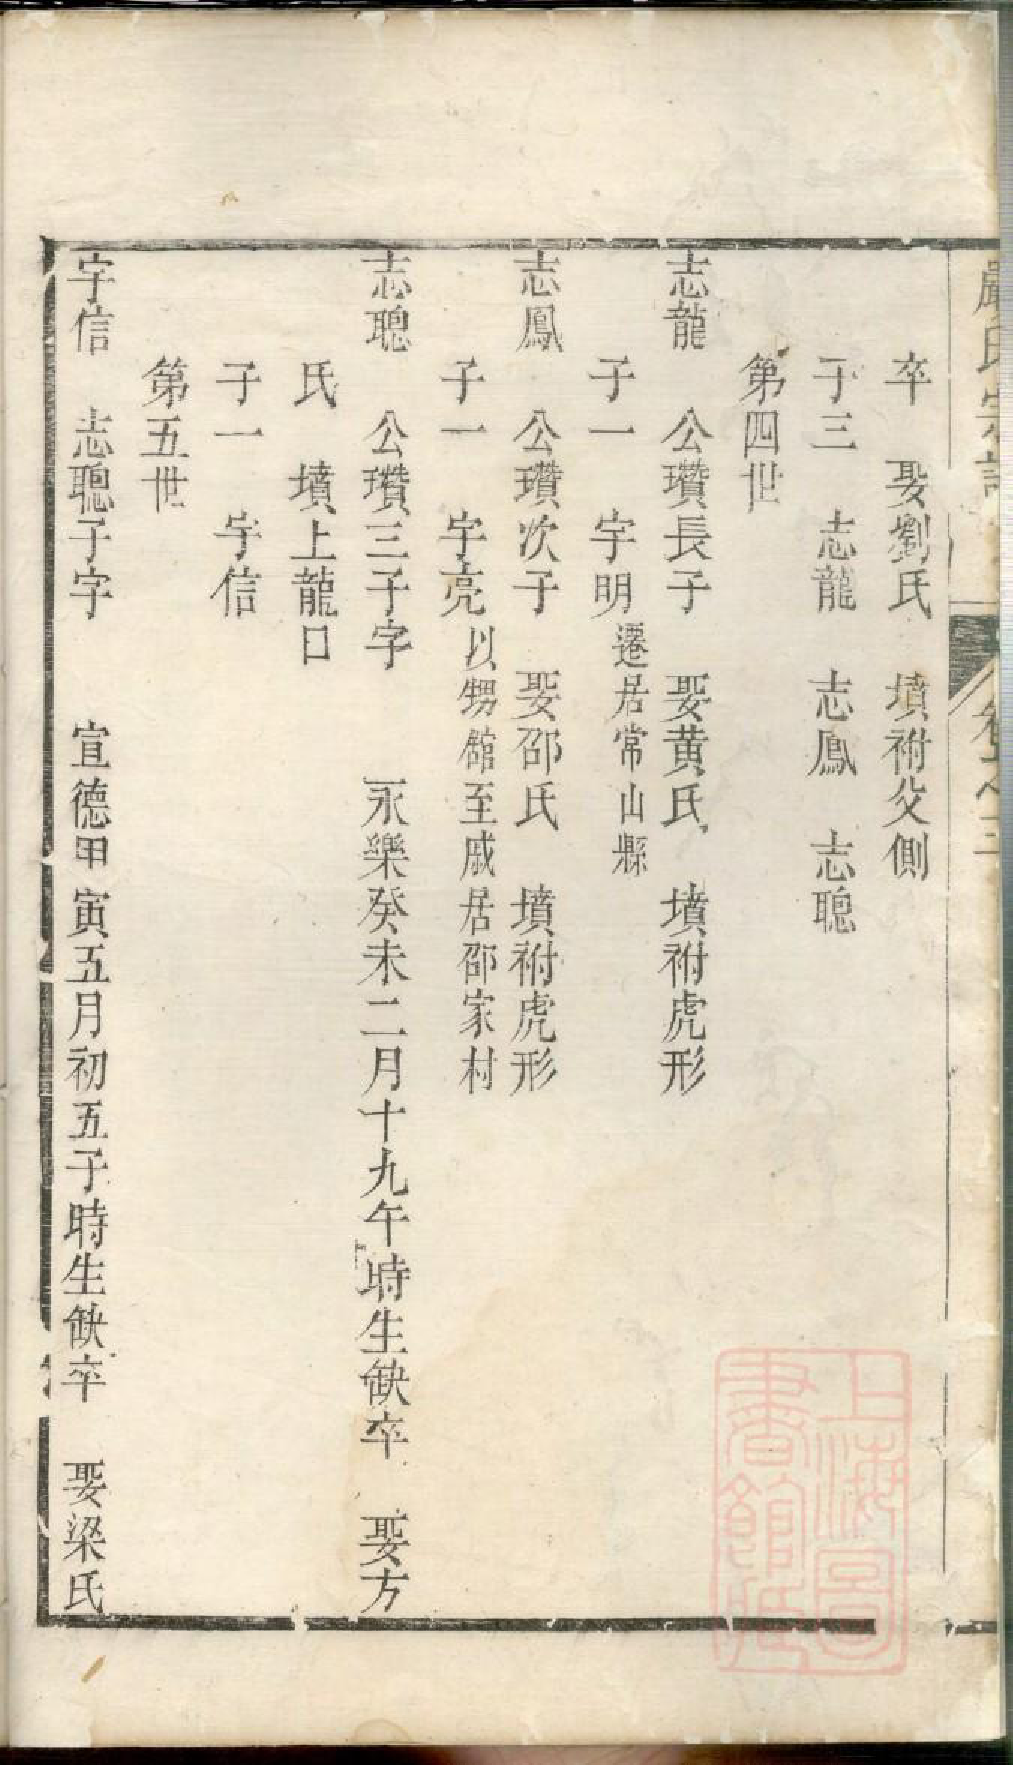 嚴氏宗譜 卷之三
卒 娶劉氏 墳祔父側
子三 志龍 志鳳 志聰
第四世
志龍 公瓚長子 娶黄氏 墳祔虎形
子一 宇明 遷居常山縣
志鳳 公瓚次子 娶邵氏 墳祔虎形
子一 宇亮 以甥館至戚居邵家村
志聰 公瓚三子字 永樂癸未二月十九午時生缺卒 娶方
氏 墳上龍口
子一 宇信
第五世
宇信 志聰子字 宣德甲寅五月初五子時生缺卒 娶梁氏
上海圖
書館藏